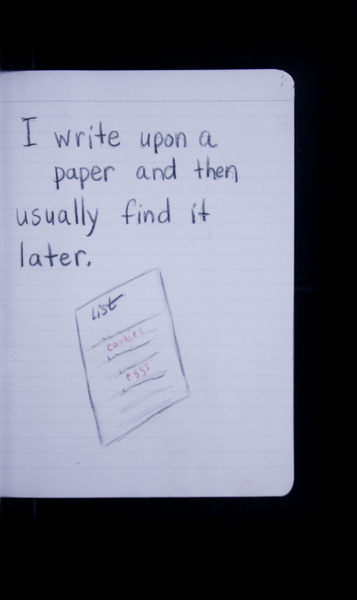 I write upon a
paper and then
usually find it
later.
List
cookies
eggs